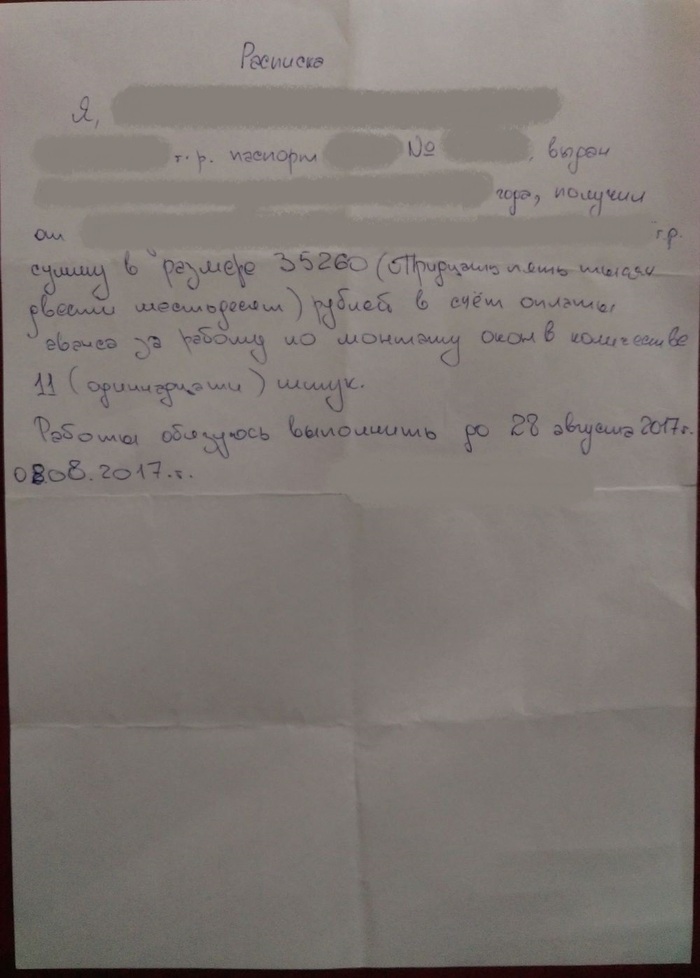 Расписка
Я,
г.р. паспорт № , выдан
года, получил
от г.р.
сумму в размере 35260 (Тридцать пять тысяч
двести шестьдесят) рублей в счёт оплаты
аванса за работу по монтажу окон в количестве
11 (одиннадцати) штук.
Работы обязуюсь выполнить до 28 августа 2017г.
08.08.2017.г.